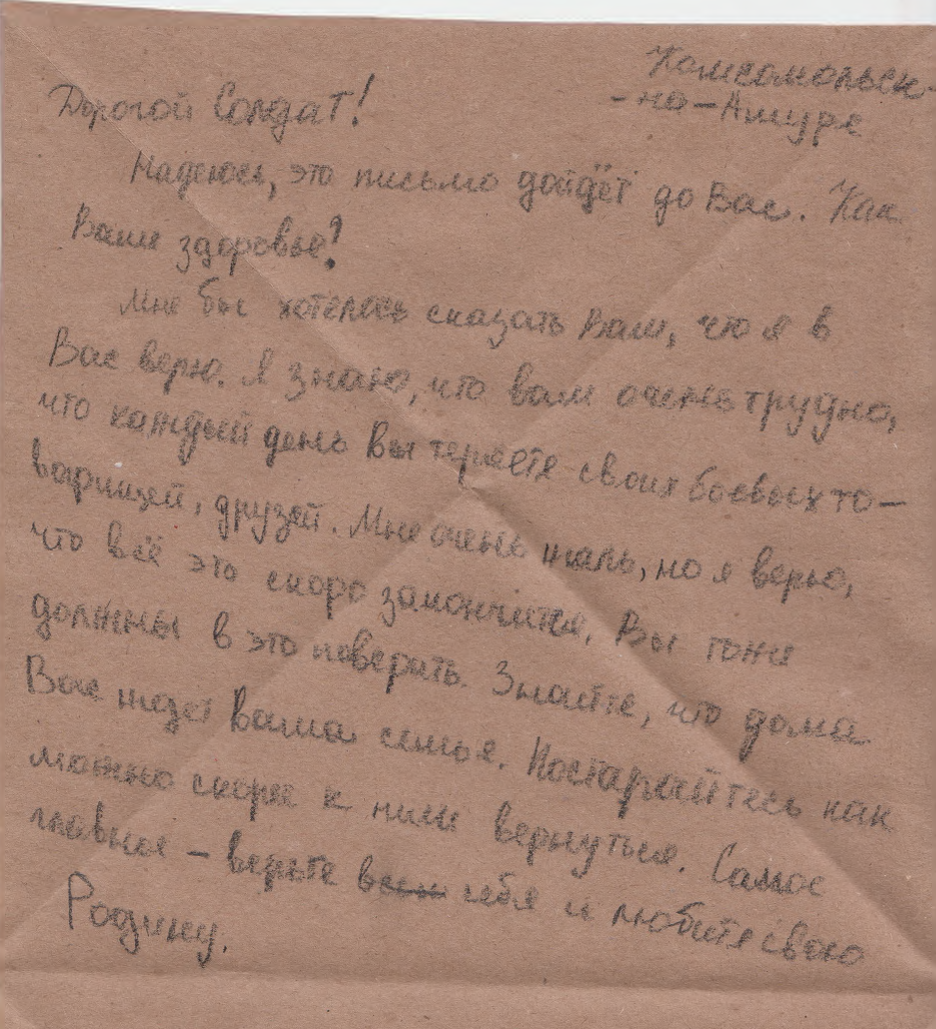 Комсомольск-
-на-Амуре
Дорогой Солдат!
Надеюсь, это письмо дойдёт до Вас. Как
Ваше здоровье?
Мне бы хотелось сказать Вам, что я в
Вас верю. Я знаю, что вам очень трудно,
что каждый день Вы теряете своих боевых то-
варищей, друзей. Мне очень жаль, но я верю,
что всё это скоро закончится, Вы тоже
должны в это поверить. Знайте, что дома
Вас ждет ваша семья. Постарайтесь как
можно скорее к ним вернуться. Самое
главное – верьте в себя и любите свою
Родину.